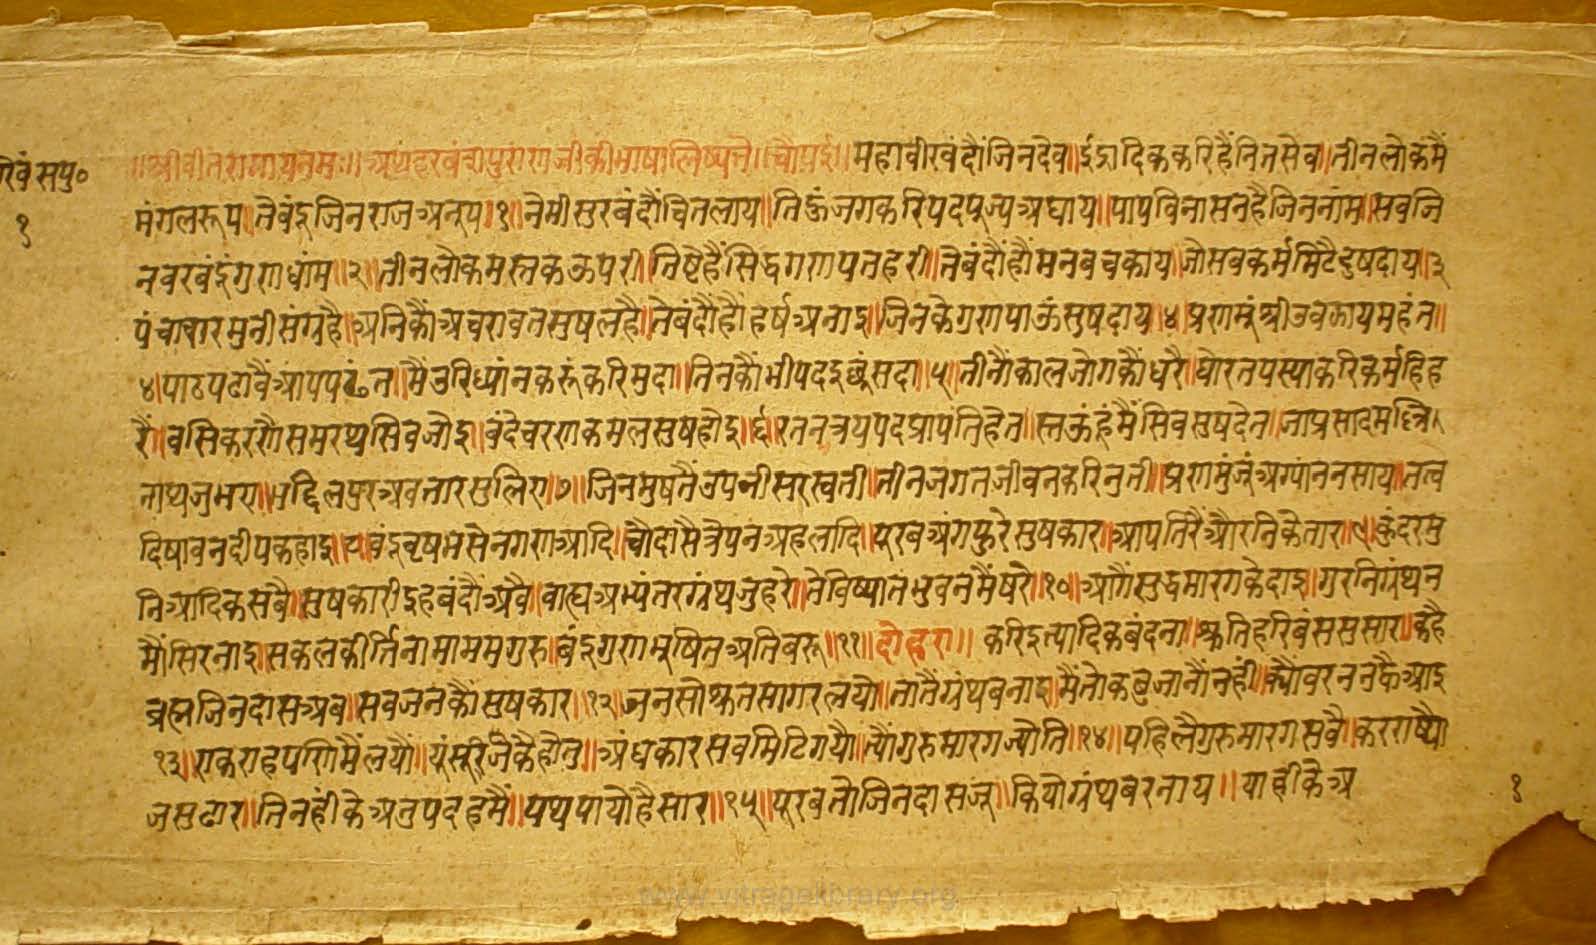 रिवंसपु०
१
॥श्रीवीतरागायनमः॥अथहरवंसपुराणजीकीभाषालिष्यते॥चौपई॥महावीरवंदौंजिनदेव॥इंद्रादिककरिहैंनितसेव॥तीनलोकमैं
मंगलरूप॥तेबंदूजिनराजअनूप॥१॥नेमीसुरबंदौंचितलाय॥तिऊंजगकरिपदपूज्यअघाय॥पापविनासनहैजिननांम॥सवजि
नवरवंदुंगुणधांम॥२॥तीनलौकमस्तकऊपरी॥तिष्टेहैंसिद्धगणपतहरी॥तेबंदौंहौंमनबचकाय॥जौसबकर्ममिटैदुषदाय॥३
पंचाचारमुनीसंग्रहै॥अनिकौंअचरावतसुषलहै॥तेबंदौंहौंहर्षअनाइ॥जिनकेगुणपाऊंसुषदाय॥४॥प्रणमूंश्रीउवझायमहंत॥
४॥पाठपढावैंआपपढंत॥मैंउरिध्यांनकरूंकरिमुदा॥तिनकौंभीपदइछूंसदा॥५॥तीनौंकालजोगकौंधरै॥घोरतपस्याकरिकर्महिह
रैं॥वसिकरणैसमरथसिवजोइ॥बंदेचरणकमलसुषहोइ॥६॥रतनत्रयपदप्रापतिहेत॥स्तऊंहूंमैंसिवसुषदेत॥जाप्रसाद
नाथजुभए॥भद्दिलपुरअवतारसुलिए॥७॥जिनमुषतैंउपनीसरस्वती॥तीनजगतजीवनकरिनुती॥प्रणमुंजूंअग्यांननसाय॥तत्व
दिषावनदीपकहाइ॥८॥वंदूवृषभसेनगणआदि॥चौदासैत्रेपनअहलादि॥पूरबअंगफुरेसुषकार॥आपतिरैंऔरनिकेतार॥९॥कुंदरमु
निआदिकसबै॥सुषकारीइहबंदौंअबै॥वाह्यअभ्यंतरग्रंथजुहरे॥तेविष्यातभुवनमैंषरे॥१०॥आगैंसुद्धमारगकेदाइ॥गुरनिग्रंथन
मौंसिरनाइ॥सकलकीर्त्तिनामाममगुरु॥बंदूगुणभूषितअतिबरू॥११॥दोहरा॥करिइत्यादिकबंदना॥श्रुतिहरिबंससुसार॥कहै
ब्रह्मजिनदासअब॥सवजनकौंसुषकार॥१२॥जनसोश्रुतसागरलयो॥तातैंग्रंथबनाइ॥मैंतोकबुजानौंनहीं॥क्यौवरननकैआइ
१३॥एकरहपणिमैंलयौं॥यूंसूरिजकैहोत॥अंधकारसवमिटिगयौ॥त्यौंगुरुमारगज्योति॥१४॥पहिलैगुरुमारगसवै॥करराष्यौ
जसुढार॥तिनहींकेअनुपदहमैं॥पथपायोहैसार॥१५॥पूरबतोजिनदासजू॥कियोग्रंथबरनाय॥याहीकेअ
१
www.vitragelibrary.org